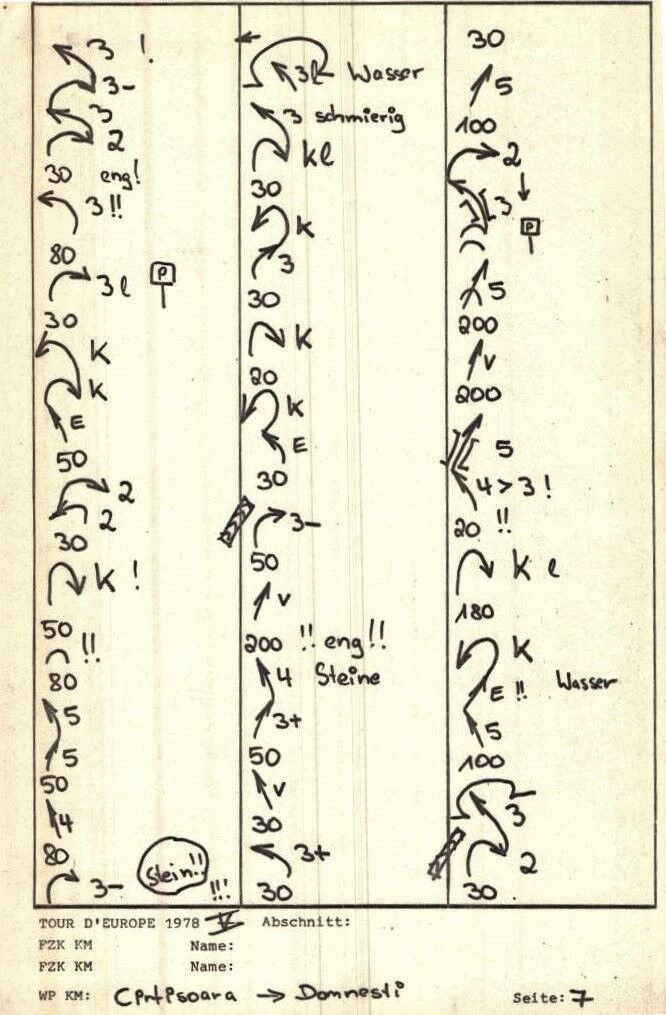 3 !
3-
3
2
30 eng!
3!!
80
3l P
30
K
K
E
50
2
2
30
K !
50
!!
80
5
5
50
4
80
3- Stein!! !!!
3l Wasser
3 schmierig
kl
30
K
3
30
K
20
K
E
30
3-
50
v
200 !! eng!!
4 Steine
3+
50
v
30
3+
30
30
5
100
2
3 P
5
200
v
200
5
4>3!
20 !!
K l
180
K
E !! Wasser
5
100
3
2
30
TOUR D'EUROPE 1978 Abschnitt:
FZK KM Name:
FZK KM Name:
WP KM: → Domnesti Seite: 7